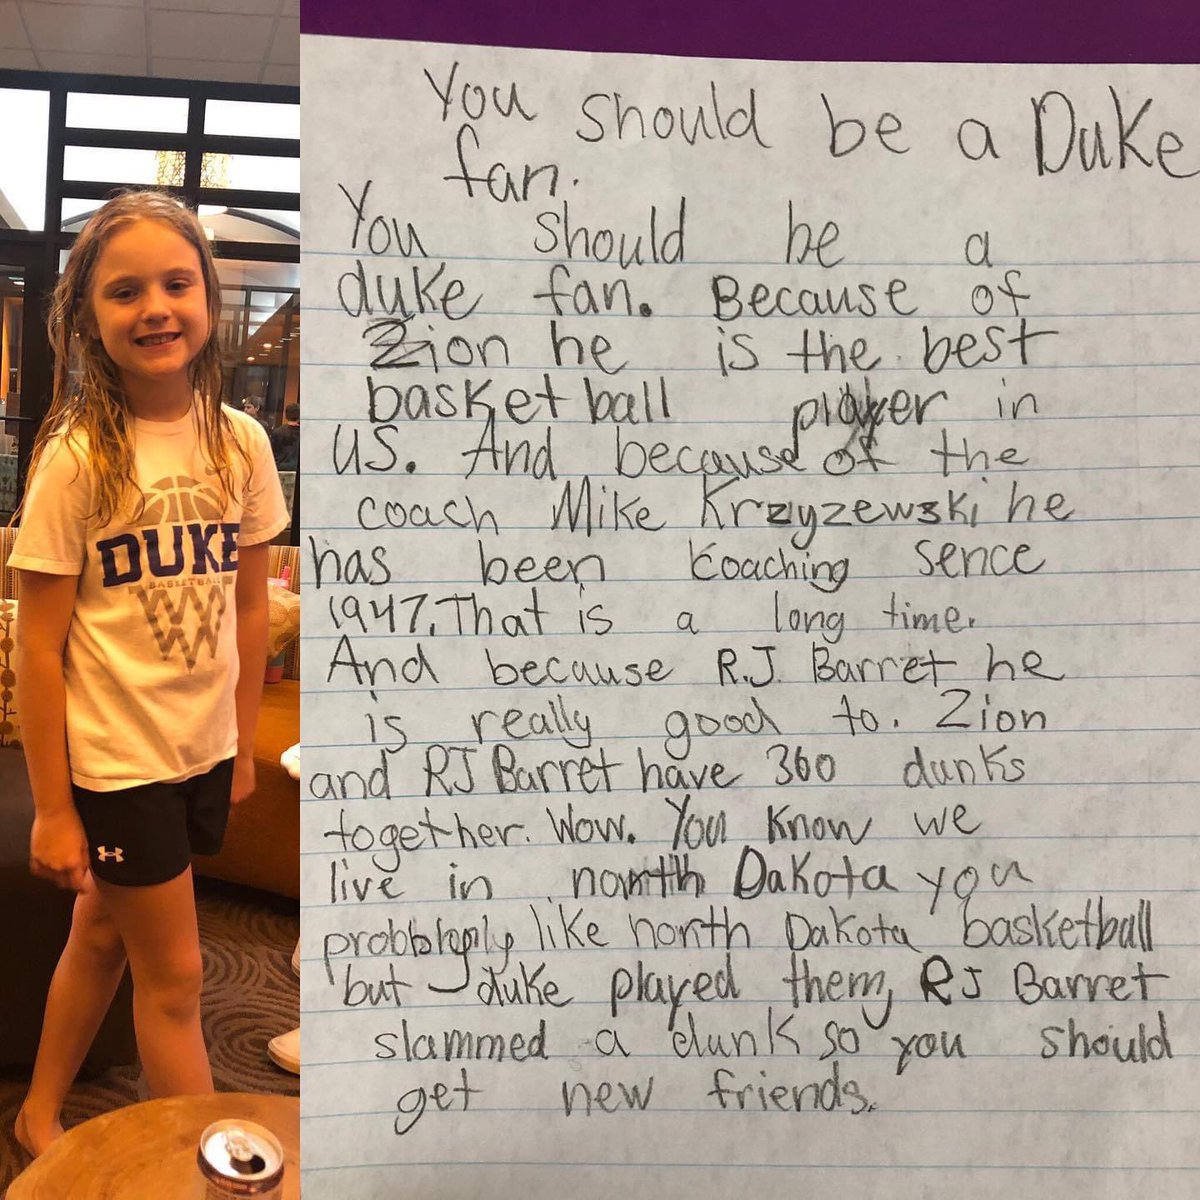 DUKE
BASKETBALL
You should be a Duke
fan.
You should be a
duke fan. Because of
Zion he is the best
basketball player in
US. And because of the
coach Mike Krzyzewski he
has been coaching sence
1947. That is a long time.
And because R.J. Barret he
is really good to. Zion
and RJ Barret have 360 dunks
together. Wow. You know we
live in north Dakota you
probbly like north Dakota basketball
but duke played them, RJ Barret
slammed a dunk so you should
get new friends.